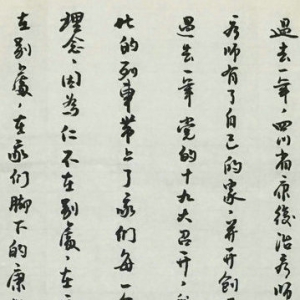 過去一年，四川省康復治療師
療師有了自己的家，并开創
過去一年党的十九大召开，
此的列車带上了我们每一个
理念，因為仁不在别處，在
在别處，在我们脚下的康